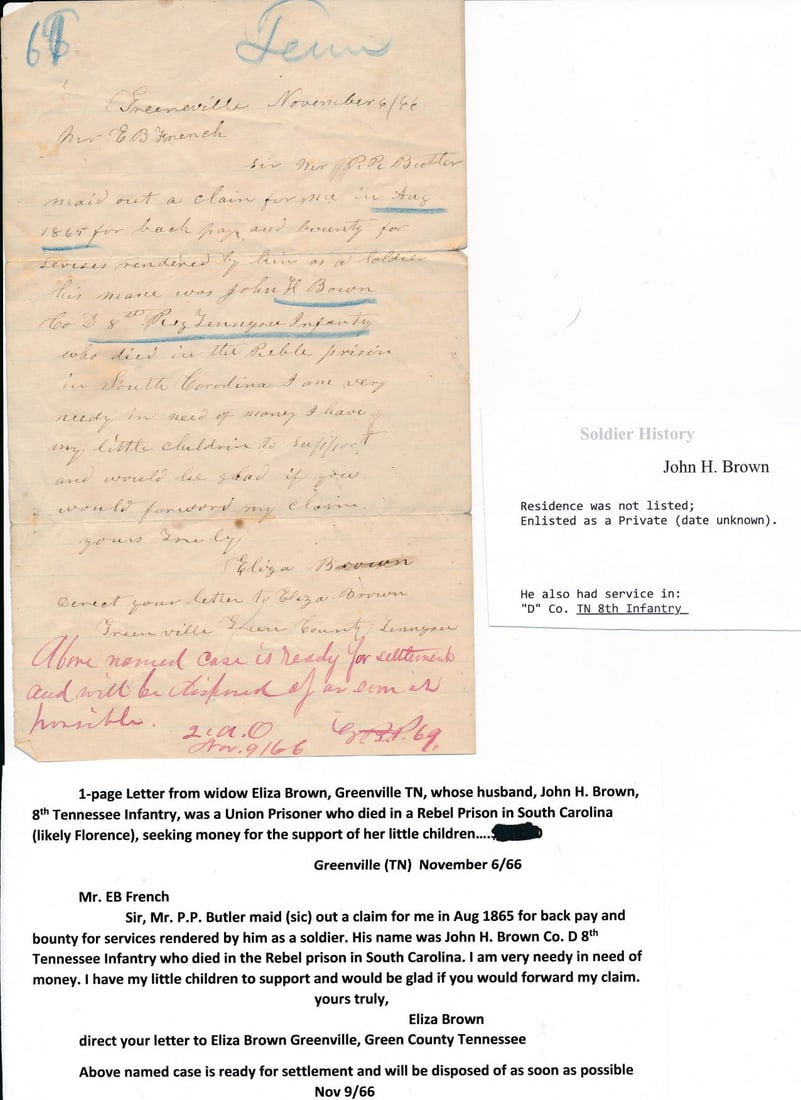 Tenn
Greeneville November 6/66
Mr E B French
Sir Mr P. P. Butler
maid out a claim for me in Aug
1865 for back pay and bounty for
servises rendered by him as a soldier
his name was John H Bown
Co D 8th Reg Tennysee Infantry
who died in the Reble prison
in South Corodina I am very
needy in need of money I have
my little childrin to support
and would be glad if you
would forword my claim.
yours Truly
Eliza Brown
Direct your letter to Eliza Brown
Green ville Green County Tennysee
Above named case is ready for settlement
and will be disposed of as soon as
possible.
2. A. O
Nov. 9/66
Soldier History
John H. Brown
Residence was not listed;
Enlisted as a Private (date unknown).
He also had service in:
"D" Co. TN 8th Infantry
1-page Letter from widow Eliza Brown, Greenville TN, whose husband, John H. Brown,
8th Tennessee Infantry, was a Union Prisoner who died in a Rebel Prison in South Carolina
(likely Florence), seeking money for the support of her little children....
Greenville (TN) November 6/66
Mr. EB French
Sir, Mr. P.P. Butler maid (sic) out a claim for me in Aug 1865 for back pay and
bounty for services rendered by him as a soldier. His name was John H. Brown Co. D 8th
Tennessee Infantry who died in the Rebel prison in South Carolina. I am very needy in need of
money. I have my little children to support and would be glad if you would forward my claim.
yours truly,
Eliza Brown
direct your letter to Eliza Brown Greenville, Green County Tennessee
Above named case is ready for settlement and will be disposed of as soon as possible
Nov 9/66